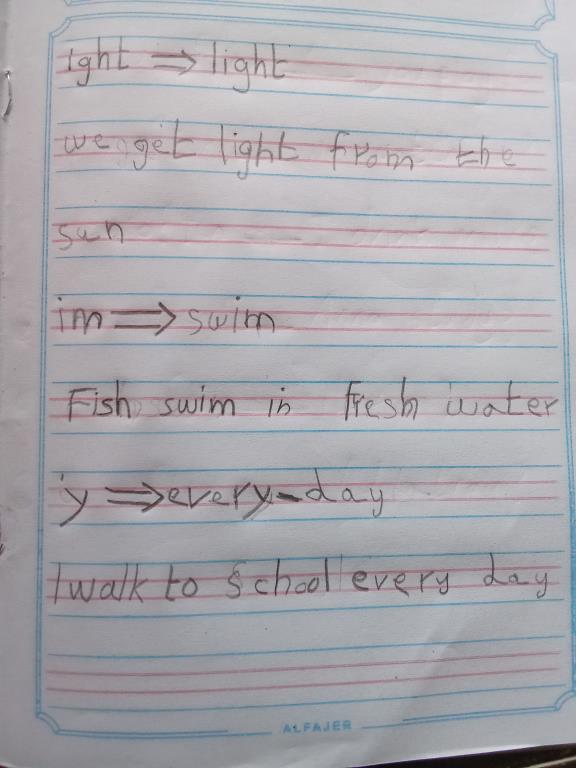 ight ⇒ light
we get light from the
sun
im ⇒ swim
Fish swim in fresh water
y ⇒ every-day
I walk to school every day
ALFAJER